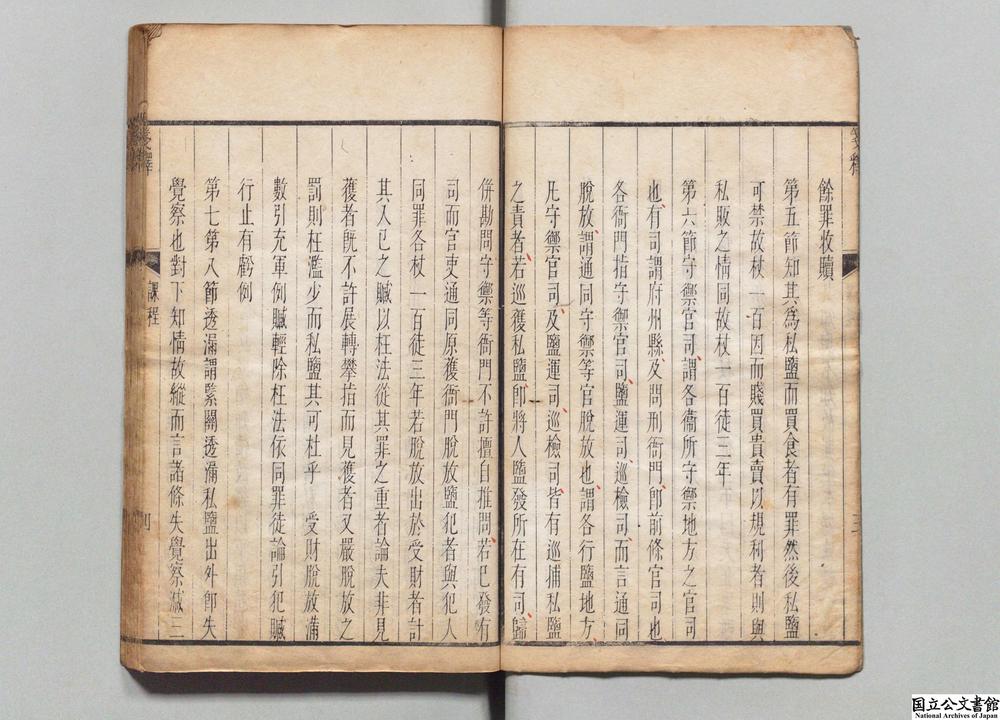 餘罪收贖
第五節知其為私鹽而買食者有罪然後私鹽
可禁故杖一百因而賤買貴賣以規利者則與
私販之情同故杖一百徒三年
第六節守禦官司謂各衞所守禦地方之官司
也有司謂府州縣及問刑衙門卽前條官司也
各衙門指守禦官司鹽運司巡檢司而言通同
脫放謂通同守禦等官脫放也謂各行鹽地方
凡守禦官司及鹽運司巡檢司皆有巡捕私鹽
之責者若巡獲私鹽卽將人鹽發所在有司歸
併勘問守禦等衙門不許擅自推問若已發有
司而官吏通同原獲衙門脫放鹽犯者與犯人
同罪各杖一百徒三年若脫放出於受財者計
其入已之贓以枉法從其罪之重者論夫非見
獲者旣不許展轉攀指而見獲者又嚴脫放之
罰則枉濫少而私鹽其可杜乎 受財脫放滿
數引充軍例贓輕除枉法依同罪徒論引犯贓
行止有虧例
第七第八節透漏謂緊關透漏私鹽出外卽失
覺察也對下知情故縱而言諸條失覺察減三
箋釋
課程
四
箋釋
三
国立公文書館
National Archives of Japan